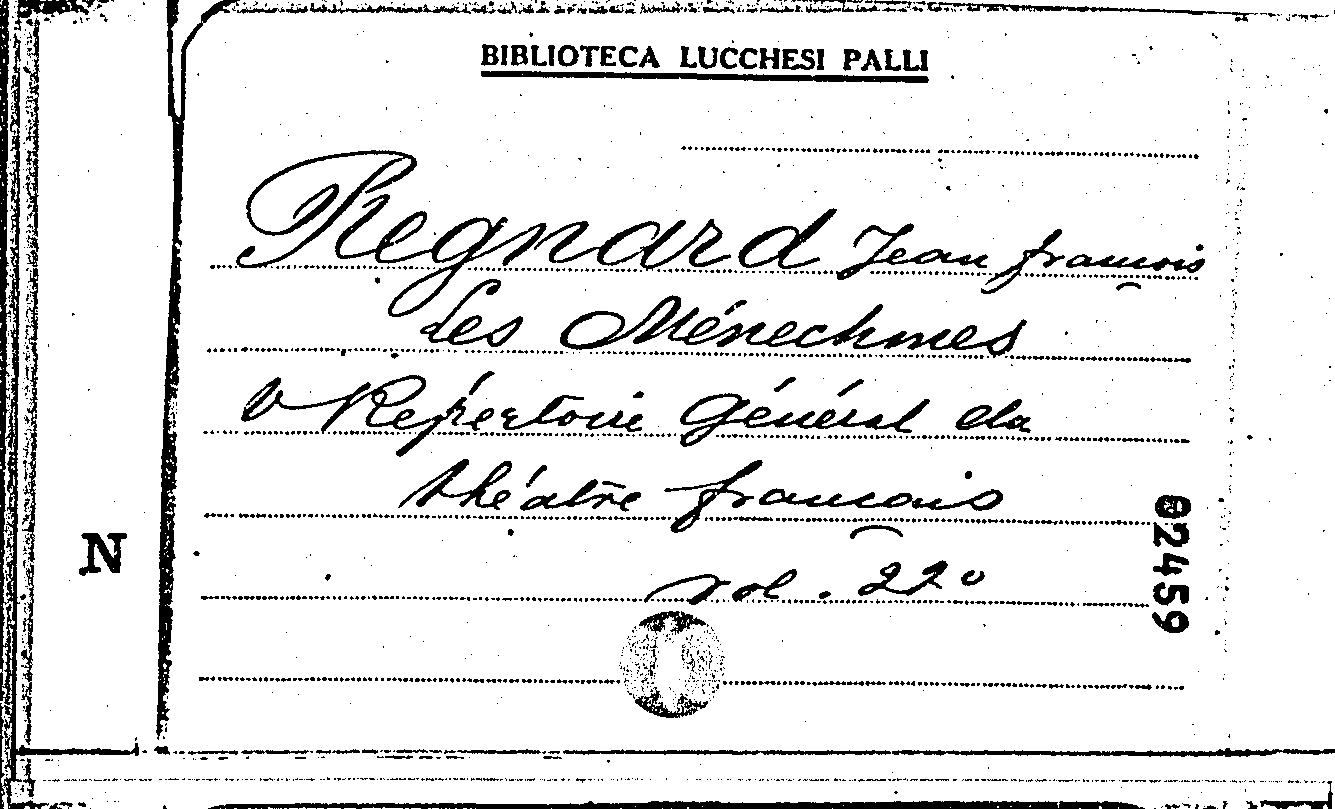 BIBLIOTECA LUCCHESI PALLI
Regnard Jean François
Les Ménechmes
V Répertoire Général du
théâtre français
vol. 22º
N
02459